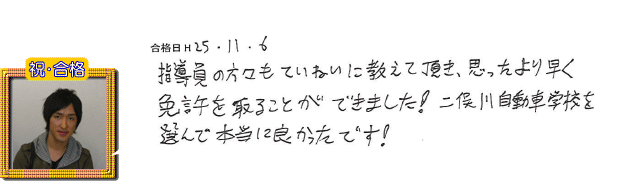 合格日 H25.11.6
祝・合格
指導員の方々もていねいに教えて頂き、思ったより早く
免許を取ることができました！二俣川自動車学校を
選んで本当に良かったです！